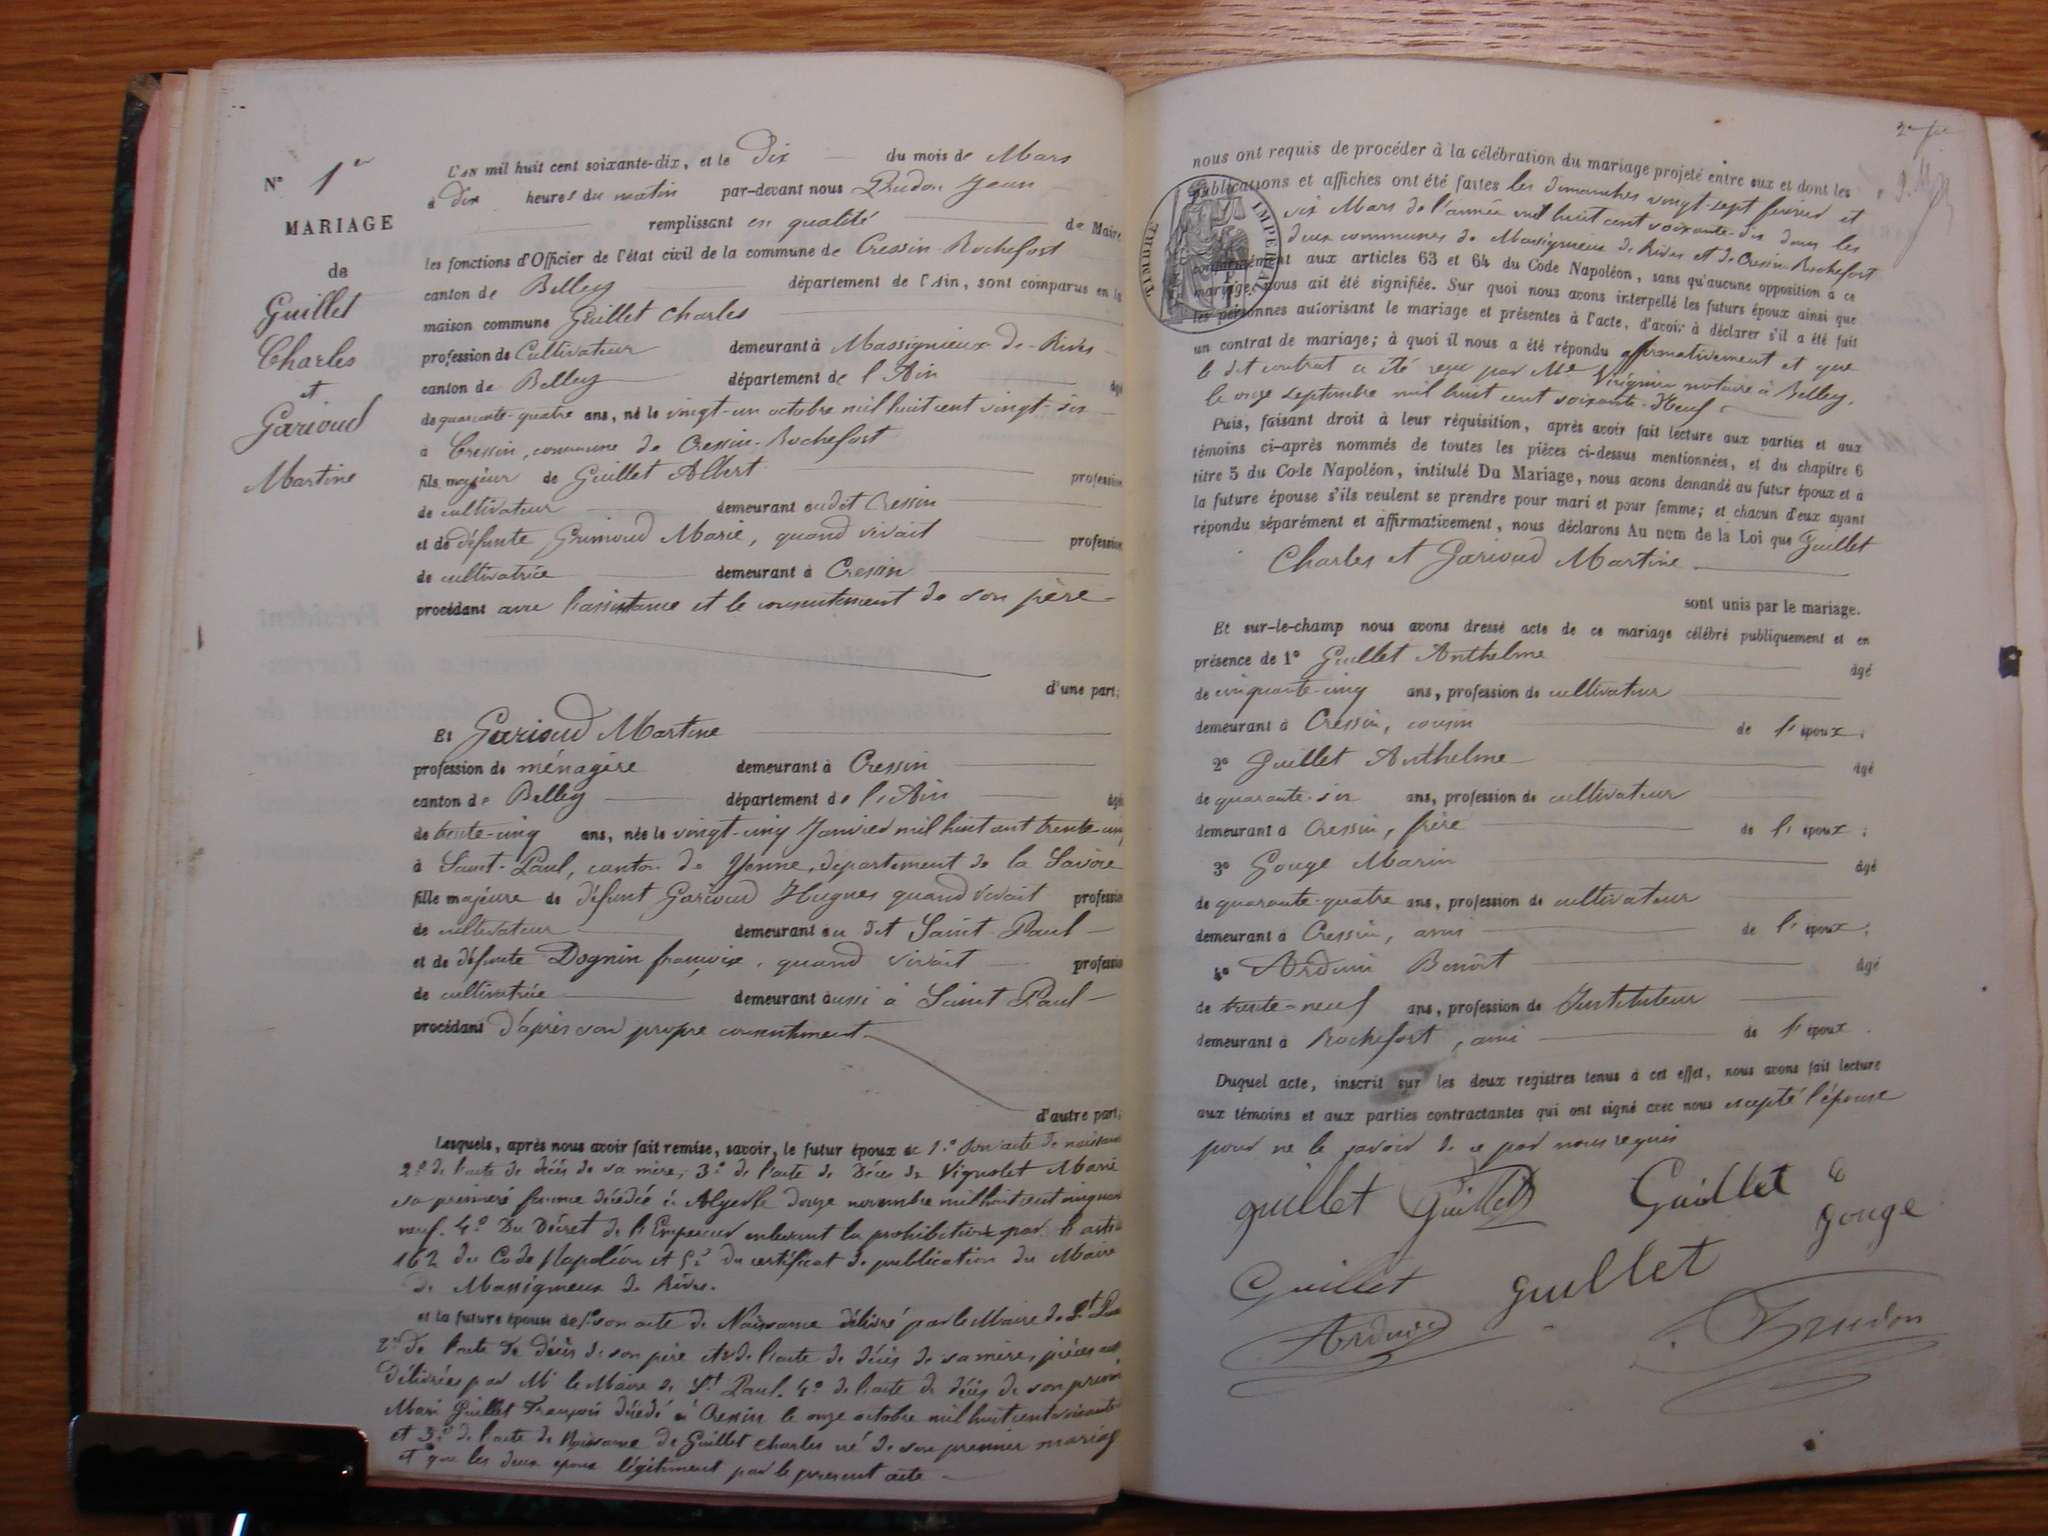 N° 1er
MARIAGE
de
Guillet
Charles
et
Garioud
Martine
L'AN mil huit cent soixante-dix, et le Dix du mois de Mars
à dix heures du matin par-devant nous Prudon Jean
remplissant en qualité de Maire
les fonctions d'Officier de l'état civil de la commune de Cressin-Rochefort
canton de Belley département de l'Ain, sont comparus en la
maison commune Guillet Charles
profession de Cultivateur demeurant à Massignieux-de-Rives
canton de Belley département de l'Ain âgé
de quarante-quatre ans, né le vingt-un octobre mil huit cent vingt-six
à Cressin, commune de Cressin-Rochefort
fils majeur de Guillet Albert profession
de cultivateur demeurant audit Cressin
et de défunte Grimoud Marie, quand vivait profession
de cultivatrice demeurant à Cressin
procédant avec l'assistance et le consentement de son père
d'une part;
Et Garioud Martine
profession de ménagère demeurant à Cressin
canton de Belley département de l'Ain âgé
de trente-cinq ans, née le vingt-cinq Janvier mil huit cent trente-cinq
à Saint-Paul, canton de Yenne, département de la Savoie
fille majeure de défunt Garioud Hugues quand vivait profession
de cultivateur demeurant au dit Saint Paul
et de défunte Dognin françoise, quand vivait profession
de cultivatrice demeurant aussi à Saint Paul
procédant d'après son propre consentement
d'autre part;
Lesquels, après nous avoir fait remise, savoir, le futur époux de 1° Son acte de naissance
2° de l'acte de décès de sa mère, 3° de l'acte de Décès de Vignolet Marie
sa première femme décédée à Alger le douze novembre mil huit cent cinquante
neuf. 4° Du Décret de l'Empereur enlevant la prohibition par l'article
162 du Code Napoléon et 5° du certificat de publication du Maire
de Massignieux de Rives.
et la future épouse de 1° son acte de Naissance délivré par le Maire de St Paul
2° de l'acte de décès de son père et de l'acte de décès de sa mère, pièces
délivrées par Mr le Maire de St Paul. 4° de l'acte de décès de son premier
Mari Guillet François décédé à Cressin le onze octobre mil huit cent soixante
et 5° de l'acte de Naissance de Guillet Charles né de son premier mariage
et que les deux époux légitiment par le présent acte
2e fe
nous ont requis de procéder à la célébration du mariage projeté entre eux et dont les
publications et affiches ont été faites les dimanches vingt-sept février et
six Mars de l'année mil huit cent soixante-dix dans les
deux communes de Massignieux de Rives et de Cressin-Rochefort
conformément aux articles 63 et 64 du Code Napoléon, sans qu'aucune opposition à ce
mariage nous ait été signifiée. Sur quoi nous avons interpellé les futurs époux ainsi que
les personnes autorisant le mariage et présentes à l'acte, d'avoir à déclarer s'il a été fait
un contrat de mariage; à quoi il nous a été répondu affirmativement et que
le dit contrat a été reçu par Me notaire à Belley,
le onze septembre mil huit cent soixante-Neuf.
TIMBRE IMPERIAL
Puis, faisant droit à leur réquisition, après avoir fait lecture aux parties et aux
témoins ci-après nommés de toutes les pièces ci-dessus mentionnées, et du chapitre 6
titre 5 du Code Napoléon, intitulé Du Mariage, nous avons demandé au futur époux et à
la future épouse s'ils veulent se prendre pour mari et pour femme; et chacun d'eux ayant
répondu séparément et affirmativement, nous déclarons Au nom de la Loi que Guillet
Charles et Garioud Martine
sont unis par le mariage.
Et sur-le-champ nous avons dressé acte de ce mariage célébré publiquement et en
présence de 1° Guillet Anthelme âgé
de cinquante-cinq ans, profession de cultivateur
demeurant à Cressin, cousin de l'époux;
2° Guillet Anthelme âgé
de quarante-six ans, profession de cultivateur
demeurant à Cressin, frère de l'époux;
3° Gouge Marin âgé
de quarante-quatre ans, profession de cultivateur
demeurant à Cressin, ami de l'époux;
4° Arduin Benoît âgé
de trente-neuf ans, profession de Instituteur
demeurant à Rochefort, ami de l'époux.
Duquel acte, inscrit sur les deux registres tenus à cet effet, nous avons fait lecture
aux témoins et aux parties contractantes qui ont signé avec nous excepté l'épouse
pour ne le savoir de ce par nous requis
guillet Guillet Guillet
gouge
Guillet guillet
Arduin Prudon